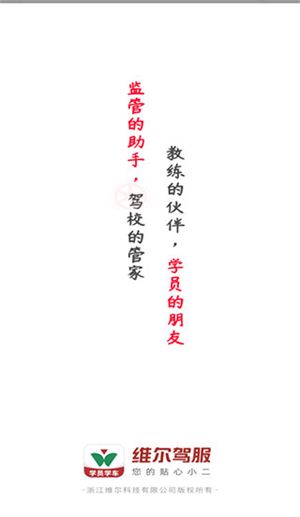 监管的助手，驾校的管家
教练的伙伴，学员的朋友
学员学车
维尔驾服
您的贴心小二
·浙江维尔科技有限公司版权所有·